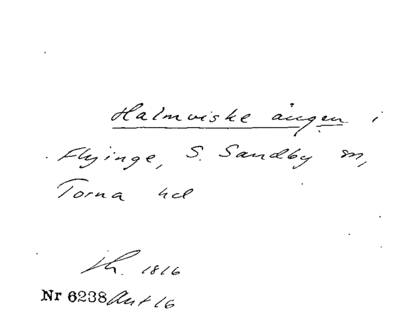 Halmviske ängen i
Flyinge, S. Sandby sn,
Torna hd
1816
Nr 6238 Akt 16